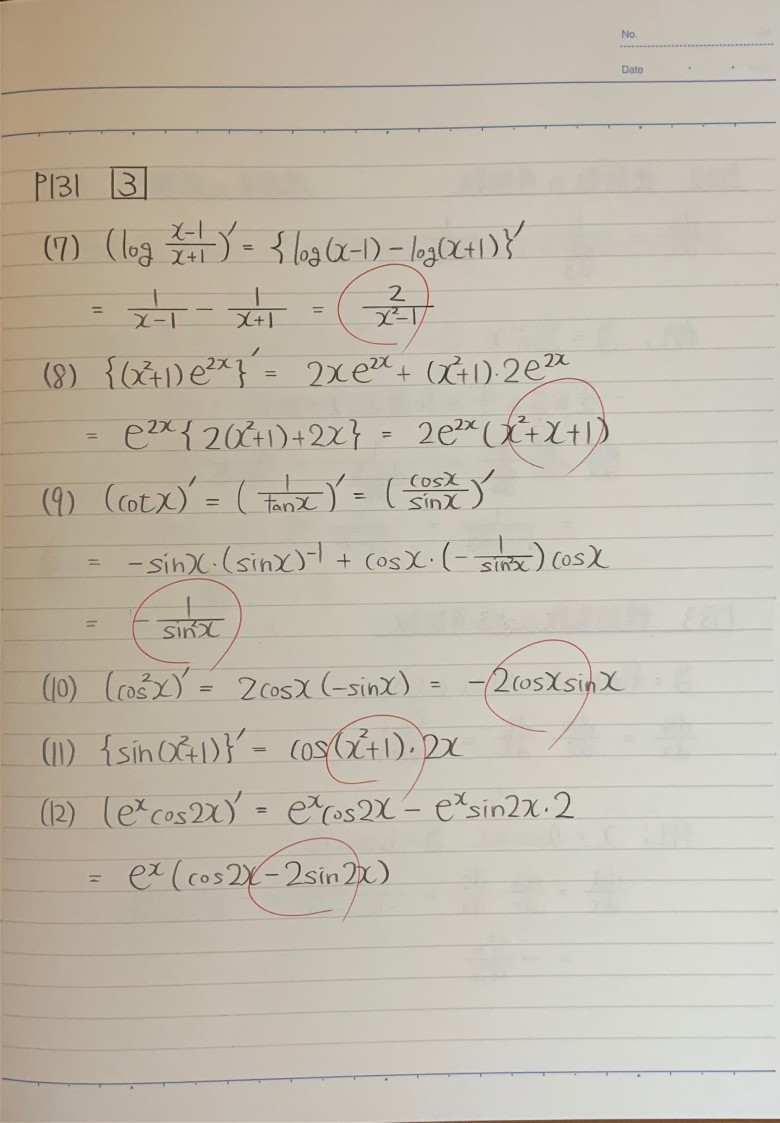 No.
Date
P131 3
(7) (log x-1/x+1)′ = {log(x-1) - log(x+1)}′
= 1/x-1 - 1/x+1 = 2/x²-1
(8) {(x²+1)e²ˣ}′ = 2xe²ˣ + (x²+1)·2e²ˣ
= e²ˣ{2(x²+1)+2x} = 2e²ˣ(x²+x+1)
(9) (cotx)′ = (1/tanx)′ = (cosx/sinx)′
= -sinx·(sinx)⁻¹ + cosx·(-1/sin²x)cosx
= -1/sin²x
(10) (cos²x)′ = 2cosx(-sinx) = -2cosxsinx
(11) {sin(x²+1)}′ = cos(x²+1)·2x
(12) (eˣcos2x)′ = eˣcos2x - eˣsin2x·2
= eˣ(cos2x-2sin2x)